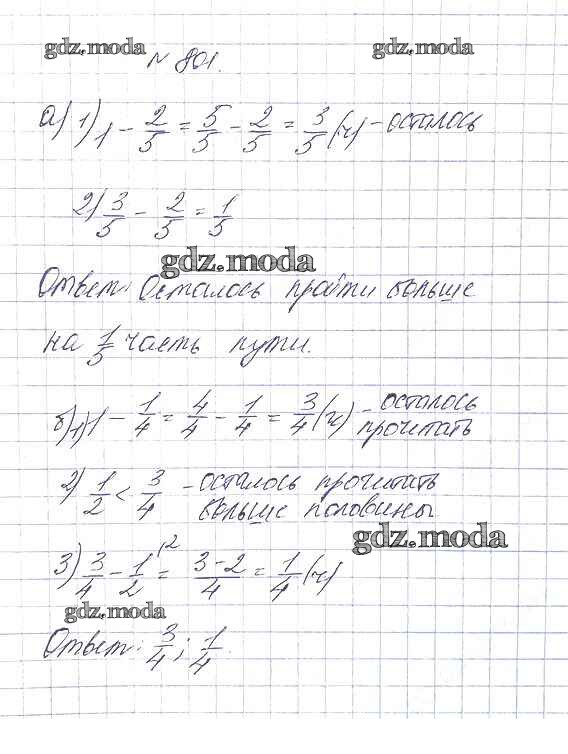 gdz.moda gdz.moda
№ 801.
а) 1) 1 - 2/5 = 5/5 - 2/5 = 3/5 (ч) - осталось
2) 3/5 - 2/5 = 1/5
gdz.moda
Ответ: Осталось пройти больше
на 1/5 часть пути.
б) 1) 1 - 1/4 = 4/4 - 1/4 = 3/4 (ч) - осталось
прочитать
2) 1/2 < 3/4 - осталось прочитать
больше половины
gdz.moda
3) 3/4 - 1/2 (2 = 3-2/4 = 1/4 (ч)
gdz.moda
Ответ: 3/4; 1/4.